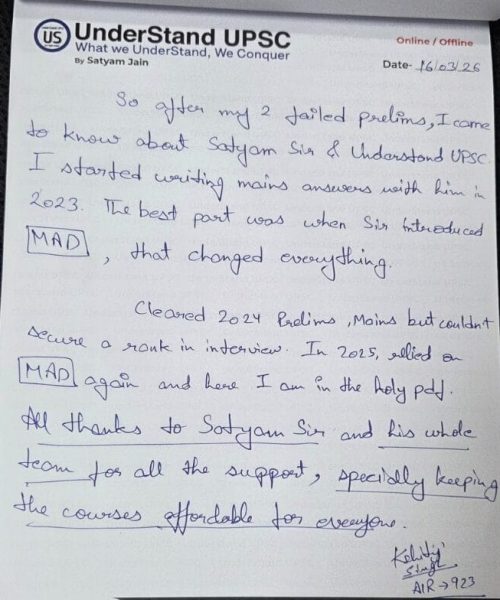 US
UnderStand UPSC
What we UnderStand, We Conquer
By Satyam Jain
Online / Offline
Date- 16/03/26
So after my 2 failed prelims, I came
to know about Satyam Sir & Understand UPSC
I started writing mains answers with him in
2023. The best part was when Sir introduced
MAD, that changed everything.
Cleared 2024 Prelims, Mains but couldn't
secure a rank in interview. In 2025, relied on
MAD again and here I am in the holy pdf.
All thanks to Satyam Sir and his whole
team for all the support, specially keeping
the courses affordable for everyone.
Kshitij
Singh
AIR → 923